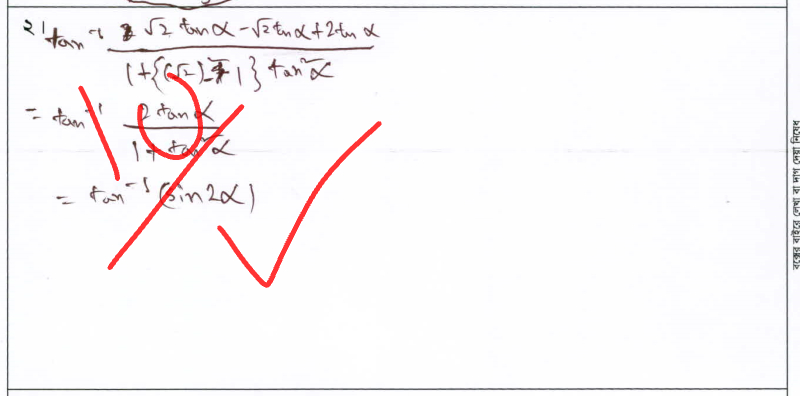 ২১ tan⁻¹ (√2 tanα - √2 tanα + 2tan α) / (1+{(√2)² - 1} tan²α)
= tan⁻¹ (2 tanα) / (1 + tan²α)
= tan⁻¹ (sin2α)
বক্সের বাইরে লেখা বা দাগ দেয়া নিষেধ